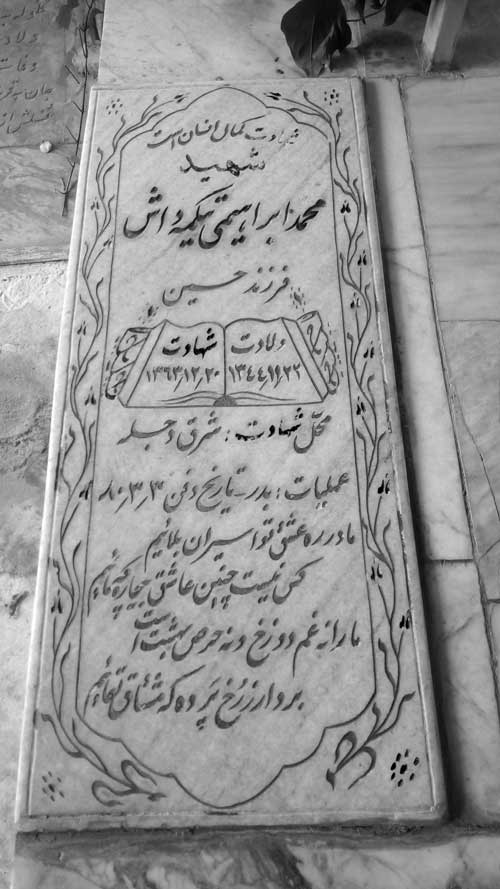 شهادت کمال انسان است
شهید
محمدابراهیمی تکیه داش
فرزند حسین
ولادت شهادت
۱۳۴۴٫۱۱٫۲۲ ۱۳۶۳٫۱۲٫۲۰
محل شهادت: شرق دجله
عملیات: بدر تاریخ دفن ۸۰٫۳٫۳
مادر ره عشق تو اسیران بلائیم
کس نیست چنین عاشق بیچاره که مائیم
ما را نه غم دوزخ و نه حرص بهشت است
بردار ز رخ پرده که مشتاق لقائیم